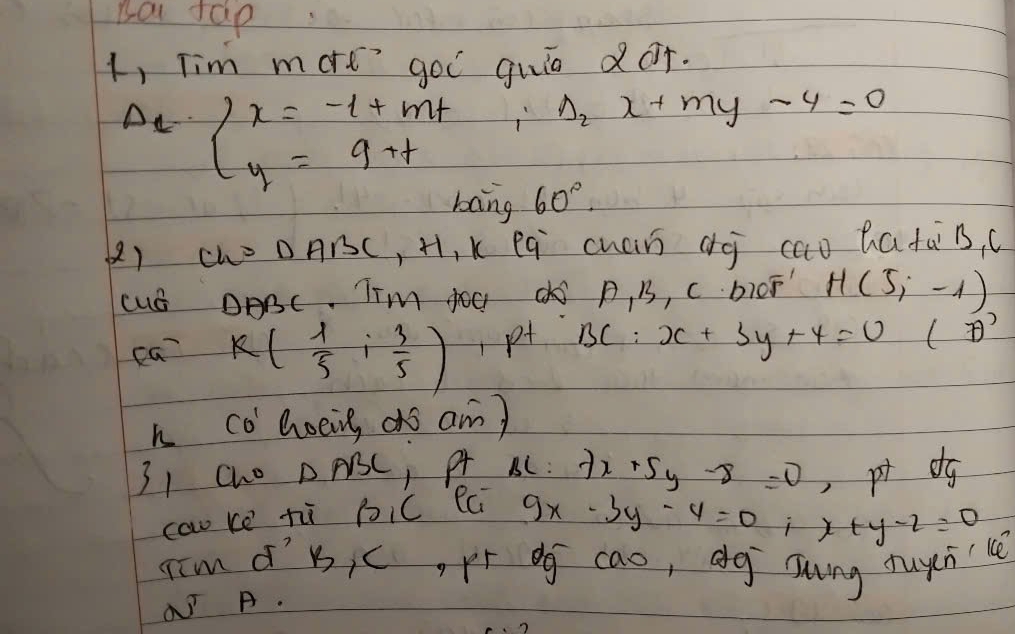 Bài tập :
1, Tìm m để góc giữa 2 đt.
Δ₁ { x = -1 + mt ; Δ₂ x + my - 4 = 0
y = 9 + t
bằng 60°.
2) Cho ΔABC, H, K là chân đg cao hạ từ B, C
của ΔABC. Tìm tọa độ A, B, C biết H(5; -1)
và K(1/5; 3/5), pt BC: x + 3y + 4 = 0 (B
có hoành độ âm)
3, Cho ΔABC, pt BC: 7x + 5y - 8 = 0, pt đg
cao kẻ từ B, C là 9x - 3y - 4 = 0; x + y - 2 = 0
Tìm đ' B, C, pt đg cao, đg trung tuyến kẻ
từ A.